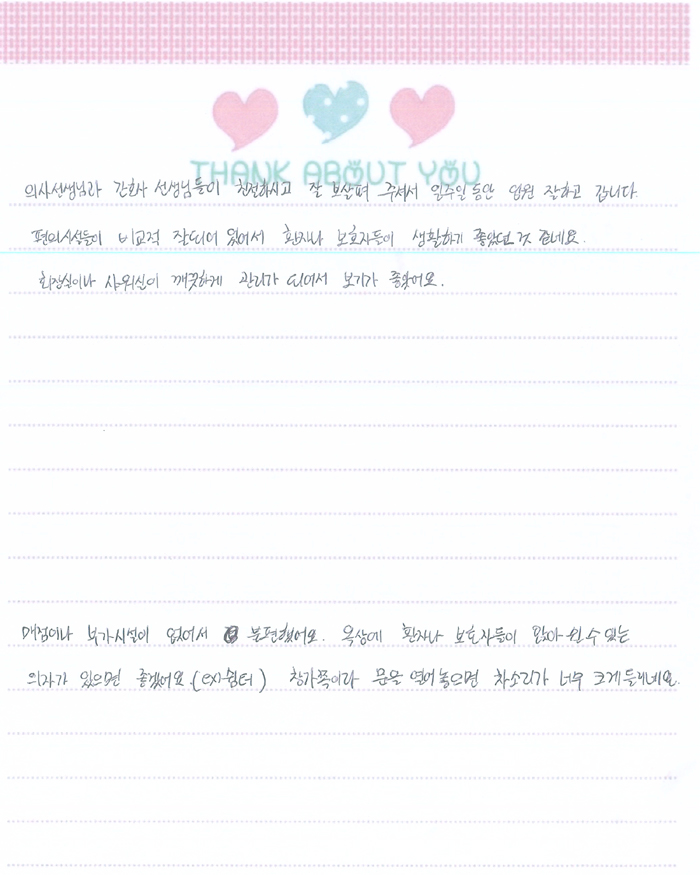 THANK ABOUT YOU
의사선생님과 간호사 선생님들이 친절하시고 잘 보살펴 주셔서 일주일 동안 입원 잘하고 갑니다.
편의시설들이 비교적 잘되어 있어서 환자나 보호자들이 생활하기 좋았던 것 같네요.
화장실이나 샤워실이 깨끗하게 관리가 되어서 보기가 좋았어요.
매점이나 부가시설이 없어서 불편했어요. 옥상에 환자나 보호자들이 앉아 쉴 수 있는
의자가 있으면 좋겠어요.(ex)쉼터) 창가쪽이라 문을 열어 놓으면 차소리가 너무 크게 들리네요.